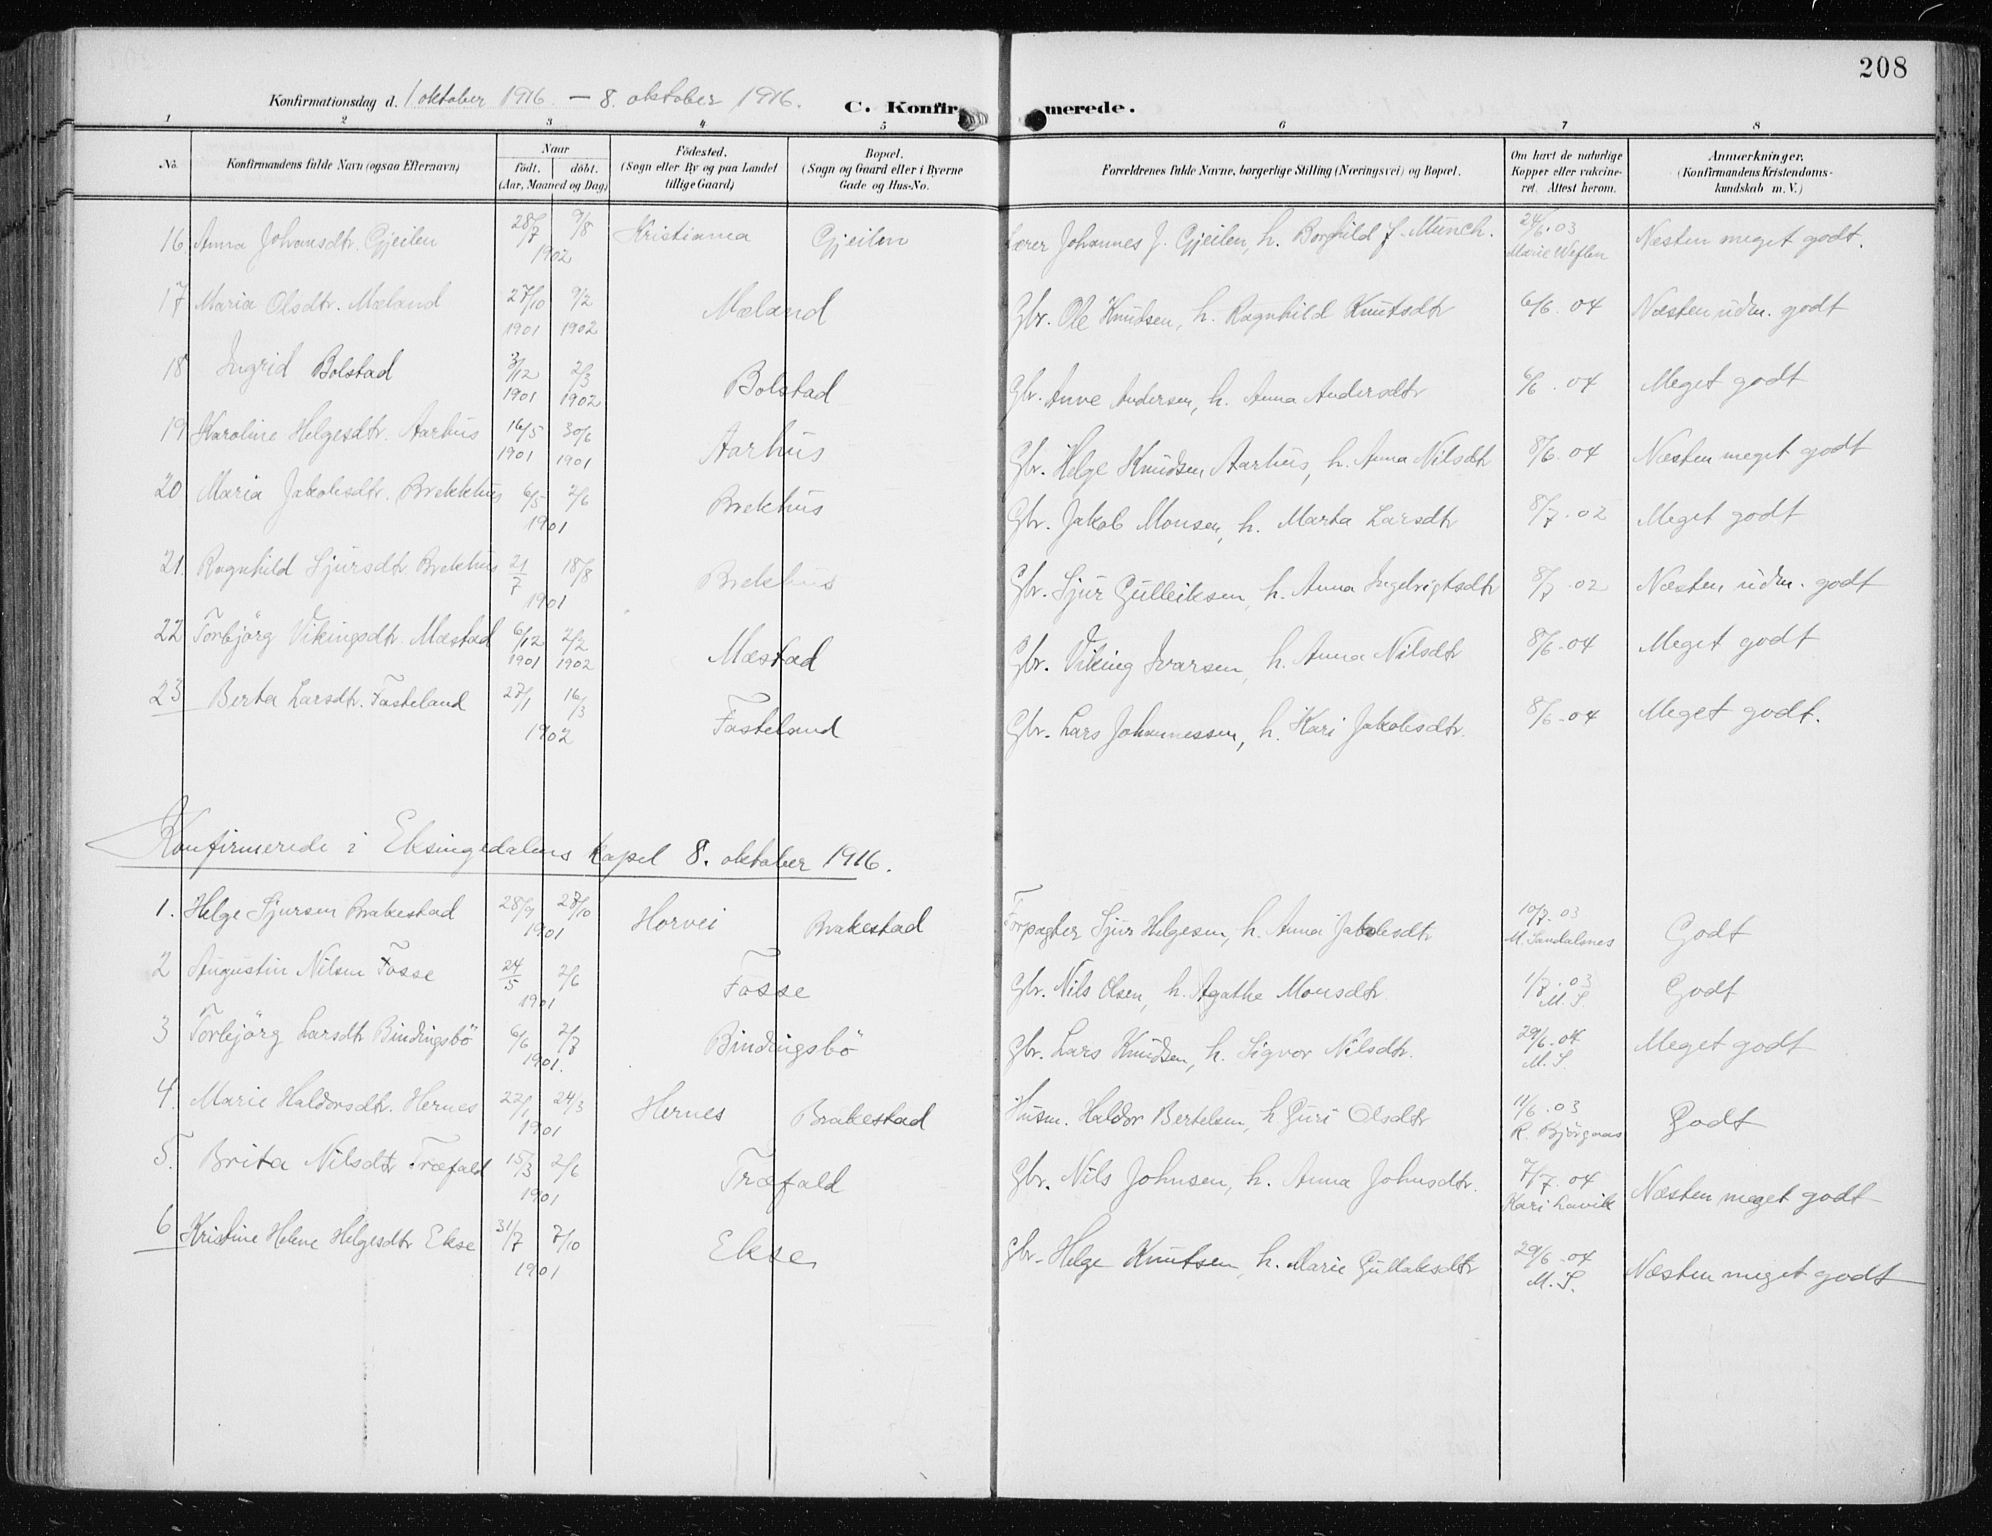 208
Konfirmationsdag d. 1 oktober 1916 — 8. oktober 1916.
C. Konfirmerede.
1 2 3 4 5 6 7 8
No. Konfirmandens fulde Navn (ogsaa Efternavn) Naar født. døbt. (Aar, Maaned og Dag) Fødested. (Sogn eller By og paa Landet tillige Gaard) Bopæl. (Sogn og Gaard eller i Byerne Gade og Hus-No. Forældrenes fulde Navne, borgerlige Stilling (Næringsvei) og Bopæl. Om havt de naturlige Kopper eller vakcineret. Attest herom. Anmærkninger. (Konfirmandens Kristendomskundskab m. V.)
16 Anna Johansdtr. Gjeilen 28/7 9/8 1902 Kristiania Gjeilen Lærer Johannes J. Gjeilen, h. Borghild f. Munch. 24/6.03 Marie Weflen Næsten meget godt.
17 Maria Olsdtr. Mæland 27/10 1901 9/2 1902 Mæland Gbr. Ole Knudsen, h. Ragnhild Knutsdtr 6/6. 04 Næsten udm. godt
18 Ingrid Bolstad 3/12 1901 2/3 1902 Bolstad Gbr. Anve Andersen, h. Anna Andersdtr 6/6. 04 Meget godt
19 Karoline Helgesdtr. Aarhus 16/5 1901 30/6 1901 Aarhus Gbr. Helge Knudsen Aarhus, h. Anna Nilsdtr 8/6. 04 Næsten meget godt
20 Maria Jakobsdtr. Brekkhus 6/5 2/6 1901 Brekhus Gbr. Jakob Monsen, h. Marta Larsdtr 8/7. 02 Meget godt
21. Ragnhild Sjursdtr Brekhus 21/7 18/8 1901 Brekhus Gbr. Sjur Gulleiksen, h. Anna Ingebrigtsdtr 8/7 02 Næsten udm. godt
22 Torbjörg Vikingsdtr. Mæstad 6/12 1901 2/2 1902 Mæstad Gbr. Viking Ivarsen, h. Anna Nilsdtr 8/6. 04 Meget godt
23 Berta Larsdtr. Fasteland 27/1 16/3 1902 Fasteland Gbr. Lars Johannessen, h. Kari Jakobsdtr. 8/6. 04 Meget godt.
Konfirmerede i Eksingedalens kapel 8. oktober 1916.
1. Helge Sjursen Brakestad 28/9 27/10 1901 Horvei Brakestad Forpagter Sjur Helgesen, h. Anna Jakobsdtr 10/7. 03 M. Sandalsnes Godt
2 Augustin Nilsen Fosse 24/5 2/6 1901 Fosse Gbr. Nils Olsen, h. Agathe Monsdtr 1/7. 03 M. S Godt
3 Torbjörg Larsdtr Bindingsbö 6/6 2/7 1901. Bindingsbö Gbr. Lars Knudsen, h. Sigvor Nilsdtr. 29/6. 04 M. S. Meget godt
4. Marie Haldorsdtr. Hernes 22/1 24/3 1901 Hernes Brakestad Husm. Haldor Bertelsen, h Guri Olsdtr 11/6. 03 R. Björgaas Godt
5. Brita Nilsdtr Træfald 15/3 2/6 1901 Træfald Gbr. Nils Johnsen, h. Anna Johnsdtr. 7/7. 04 Kari Lavik Næsten meget godt
6 Kristine Helene Helgesdtr Ekse 31/7 7/10 1901 Ekse Gbr. Helge Knutsen, h. Marie Gullaksdtr 29/6. 04 M. S. Næsten meget godt